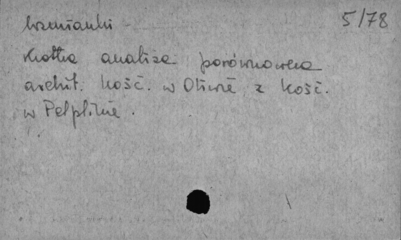 wzmianki 5/78
krótka analiza porównawcza
archit. kość. w Oliwie z kość.
w Pelplinie.